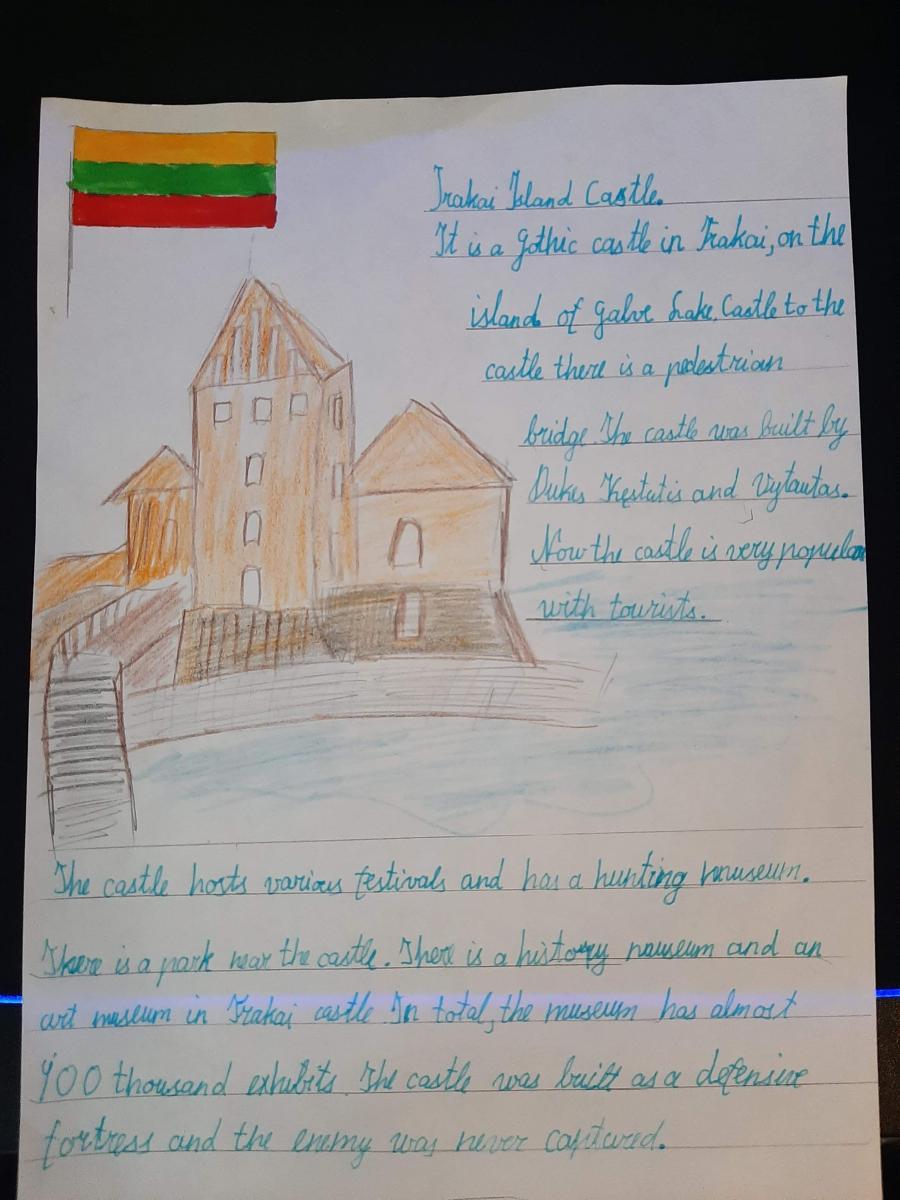 Trakai Island Castle.
It is a gothic castle in Trakai, on the
island of galve Lake. Castle to the
castle there is a pedestrian
bridge The castle was built by
Dukes Kęstutis and Vytautas.
Now the castle is very popular
with tourists.
The castle hosts various festivals and has a hunting museum.
There is a park near the castle. There is a history museum and an
art museum in Trakai castle In total, the museum has almost
thousand exhibits The castle was built as a defensive
fortress and the enemy was never captured.